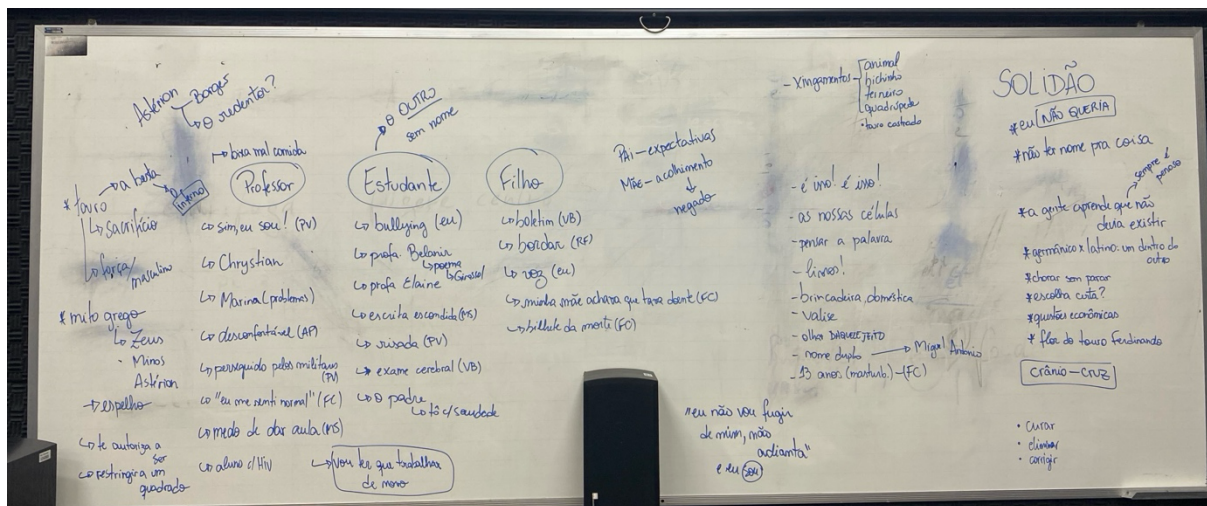 Astérion
Borges
o redentor?
* touro
a besta
interno
sacrifício
força/
masculino
* mito grego
Zeus
• Minos
Astérion
espelho
te autoriza a
ser
restringir a um
quadrado
bixa mal comida
Professor
sim, eu sou! (PV)
Chrystian
Marina (problemas)
desconfortável (AP)
perseguido pelos militares
(PV)
"eu me senti normal" (FC)
medo de dar aula (MS)
aluno c/ HIV
o OUTRO
sem nome
Estudante
bullying (eu)
profa. Belanir
poema
Girassol
profa Elaine
escrita escondida (MS)
risada (PV)
exame cerebral (VB)
o padre
tô c/ saudade
vou ter que trabalhar
de novo
Filho
boletim (VB)
bordar (RF)
voz (eu)
minha mãe achava que tava doente (FC)
bilhete da morte (FC)
PAI - expectativas
MÃE - acolhimento
negado
"eu não vou fugir
de mim, não
adianta"
e eu sou
- Xingamentos
animal
bichinho
terneiro
quadrúpede
• touro castrado
- é isso! é isso!
- as nossas células
- pensar a palavra
- livros!
- brincadeira doméstica
- valise
- olhar DAQUELE JEITO
- nome duplo Miguel Antônio
- 13 anos (masturb.) - (FC)
SOLIDÃO
* eu NÃO QUERIA
* não ter nome pra coisa
sempre é
penoso
* a gente aprende que não
devia existir
* germânico x latino: um dentro do
outro
* chorar sem parar
* escolha certa?
* questões econômicas
* flor do touro Ferdinando
Crânio - CRUZ
• curar
• eliminar
• corrigir